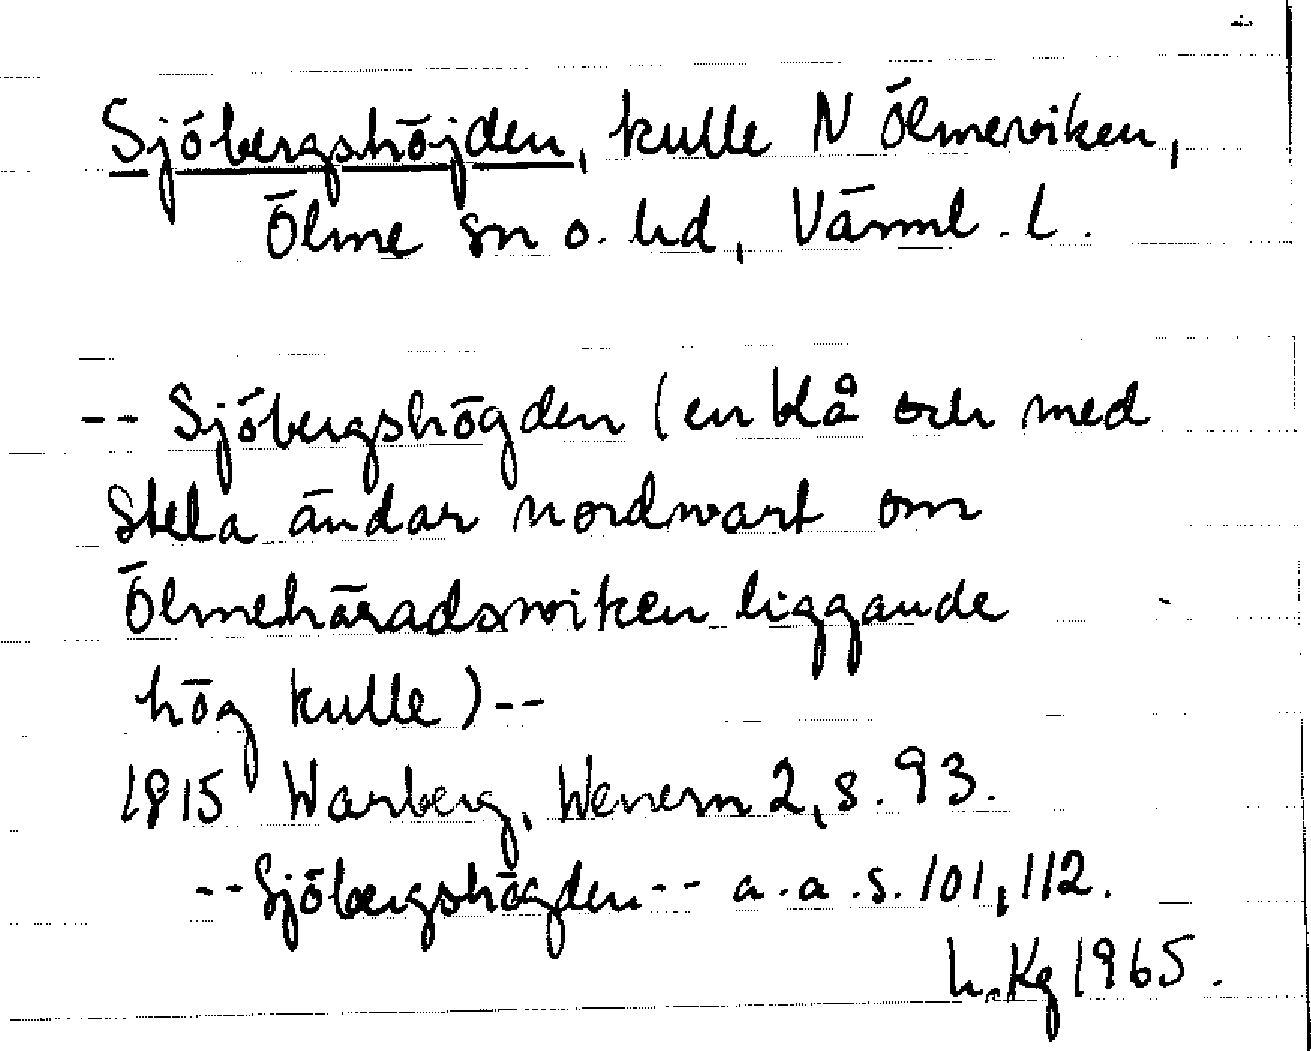 Sjöbergshöjden, kulle N Ölmeviken,
Ölme sn o. hd, Värml. l.
-- Sjöbergshögden (en blå och med
stela ändar nordwart om
Ölmehäradswiken liggande
hög kulle) --
1815 Warberg, Wenern 2, s. 93.
-- Sjöbergshögden -- a. a. s. 101, 112.
h. Kg 1965.